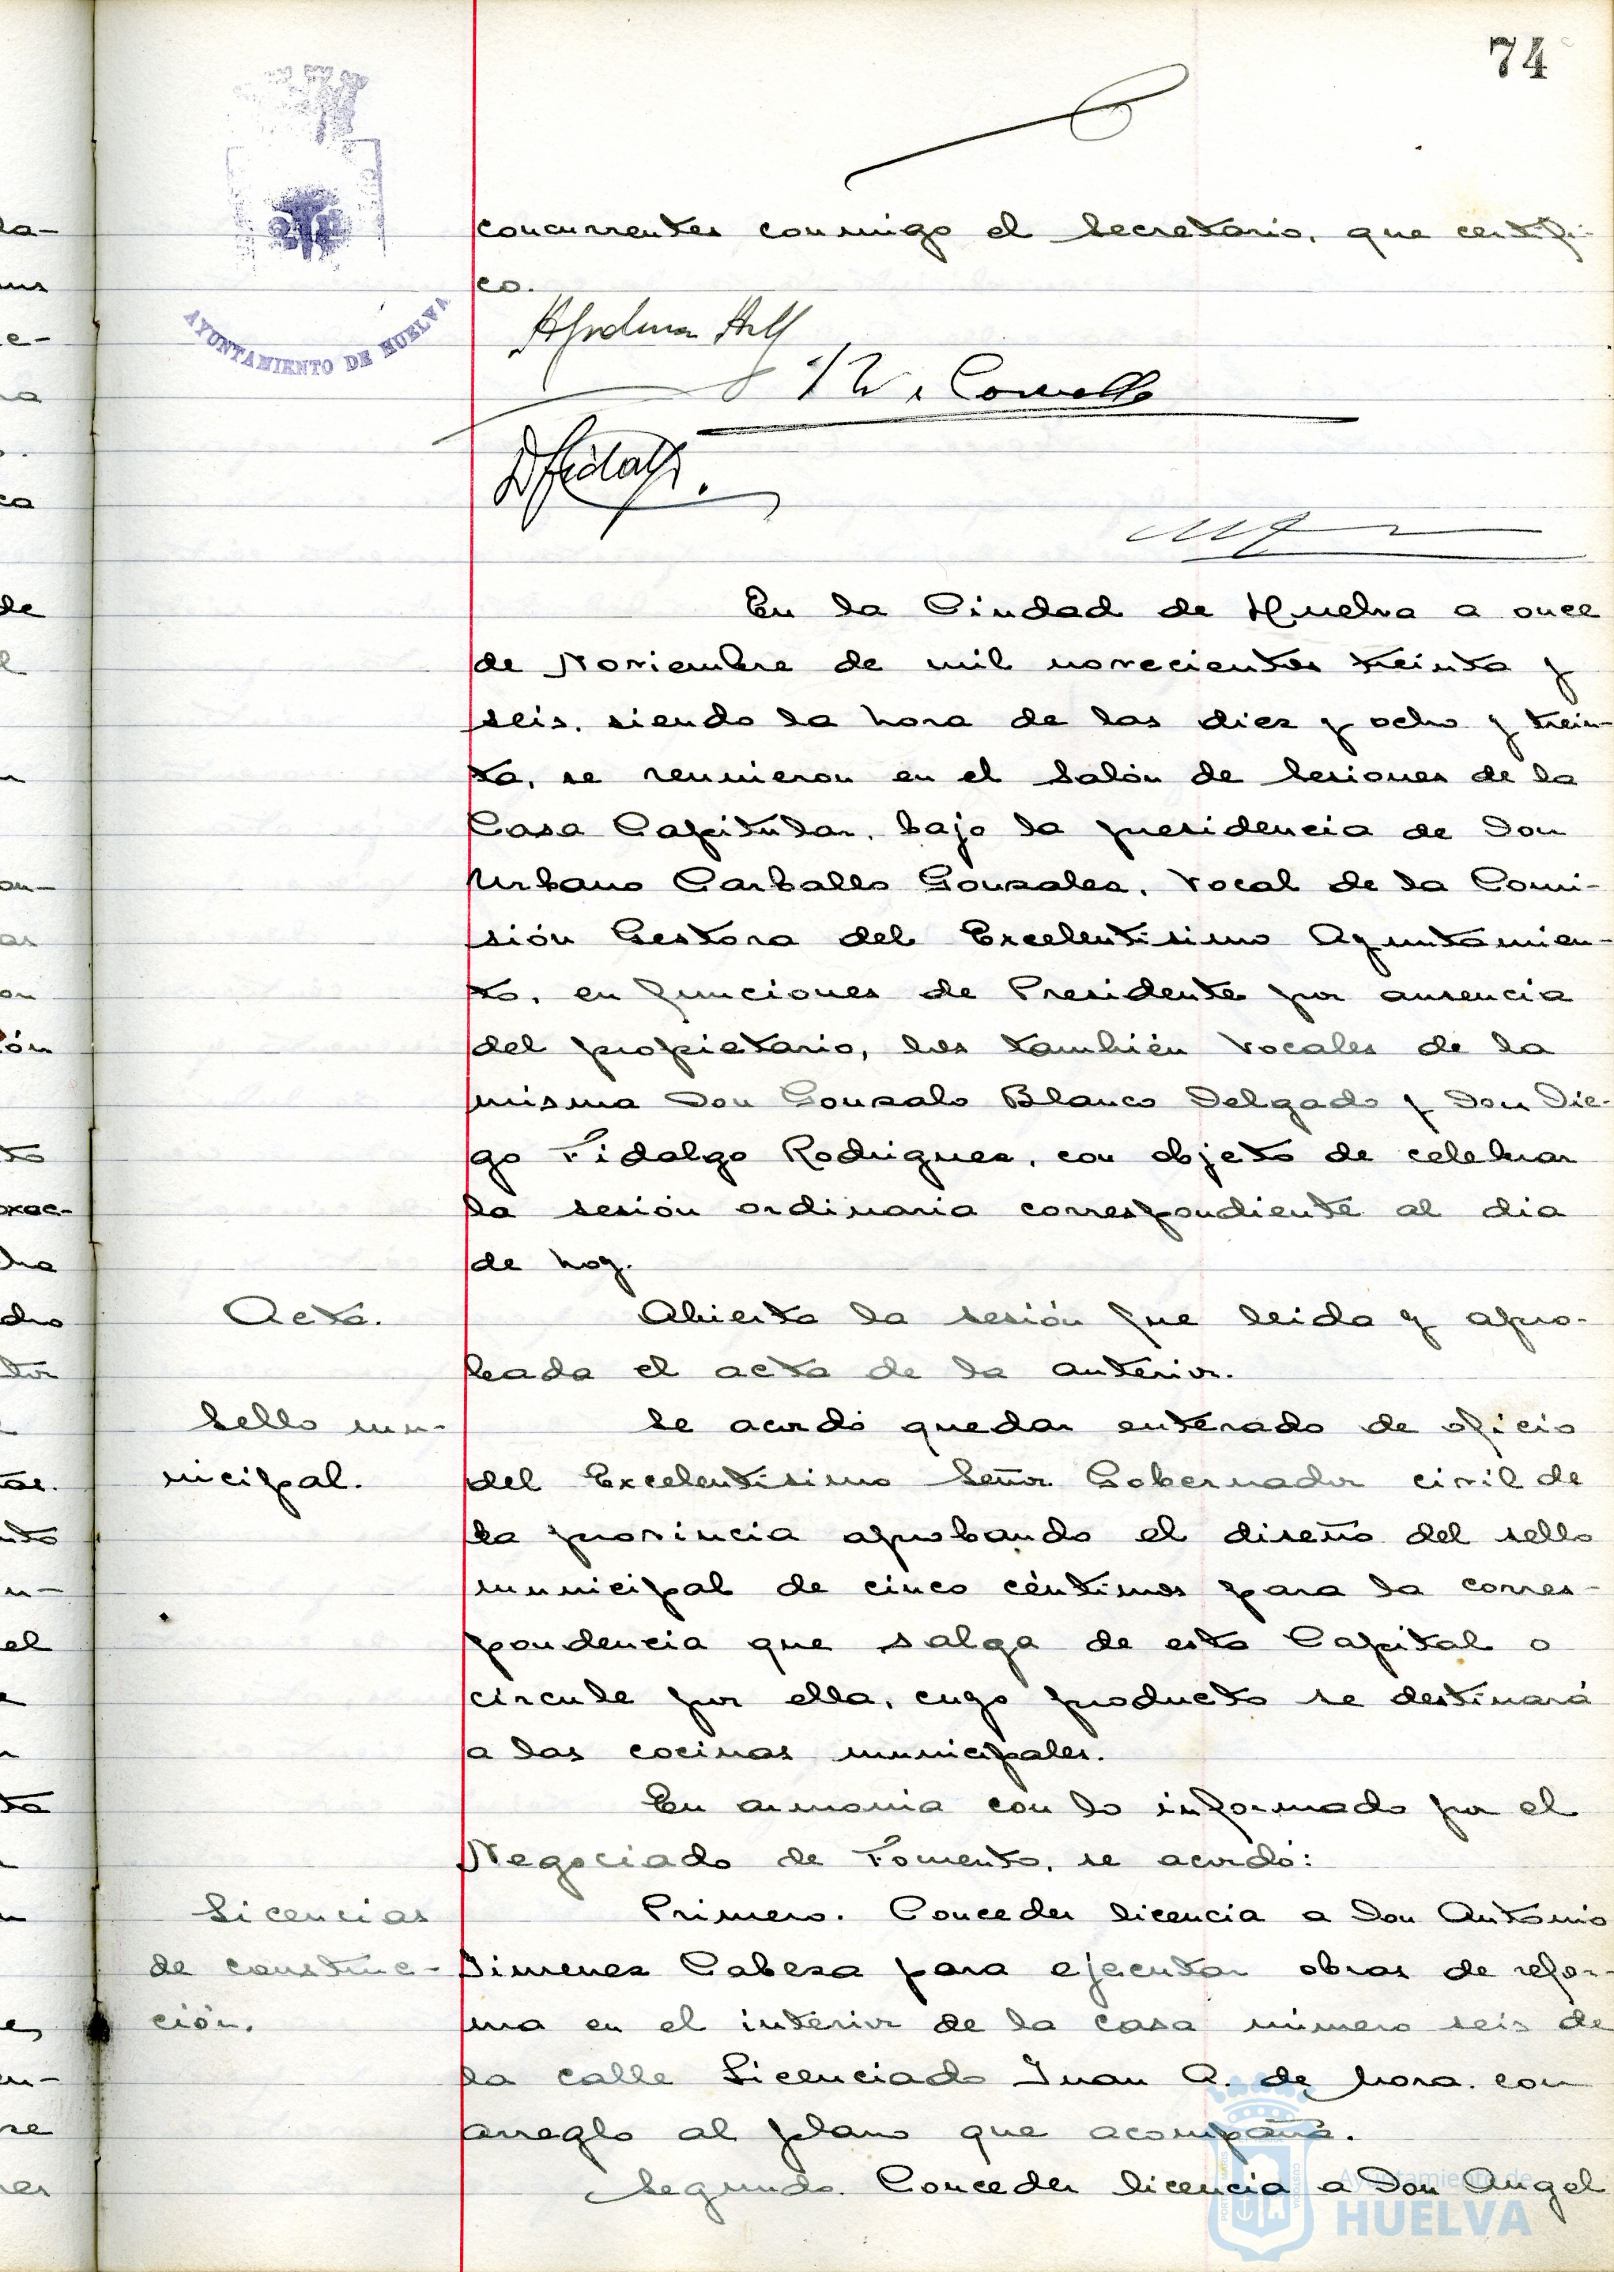 74
concurrentes conmigo el Secretario, que certifi-
co.
AYUNTAMIENTO DE HUELVA
En la Ciudad de Huelva a once
de Noviembre de mil novecientos treinta y
seis, siendo la hora de las diez y ocho y trein-
ta, se reunieron en el Salón de Sesiones de la
Casa Capitular, bajo la presidencia de Don
Urbano Carballo Gonzalez, Vocal de la Comi-
sión Gestora del Excelentisimo Ayuntamien-
to, en funciones de Presidente por ausencia
del propietario, los también Vocales de la
misma Don Gonzalo Blanco Delgado y Don Die-
go Fidalgo Rodriguez, con objeto de celebrar
la sesión ordinaria correspondiente al dia
de hoy.
Acta.
Abierta la sesión fue leida y apro-
bada el acta de la anterior.
Sello mu-
nicipal.
Se acordó quedar enterado de oficio
del Excelentisimo Señor Gobernador civil de
la provincia aprobando el diseño del sello
municipal de cinco céntimos para la corres-
pondencia que salga de esta Capital o
circule por ella, cuyo producto se destinará
a las cocinas municipales.
En armonia con lo informado por el
Negociado de Fomento, se acordó:
Licencias
de construc-
ción.
Primero. Conceder licencia a Don Antonio
Jimenez Cabeza para ejecutar obras de refor-
ma en el interior de la casa número seis de
la calle Licenciado Juan A. de Mora, con
arreglo al plano que acompaña.
Segundo. Conceder licencia a Don Angel
Ayuntamiento de
HUELVA